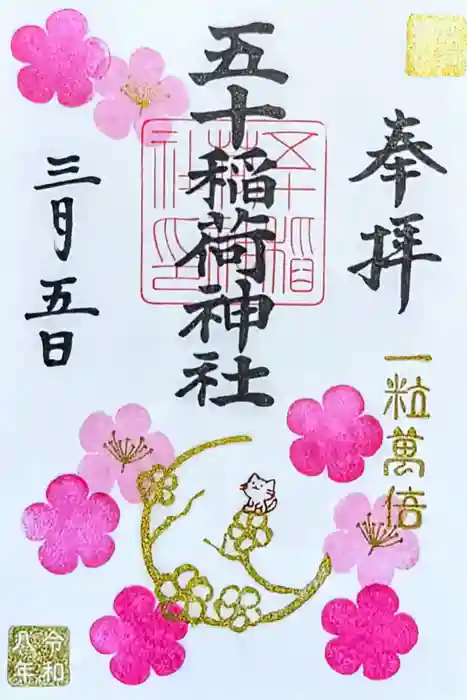 奉拝
一粒萬倍
五十稲荷神社
三月五日
令和
八年